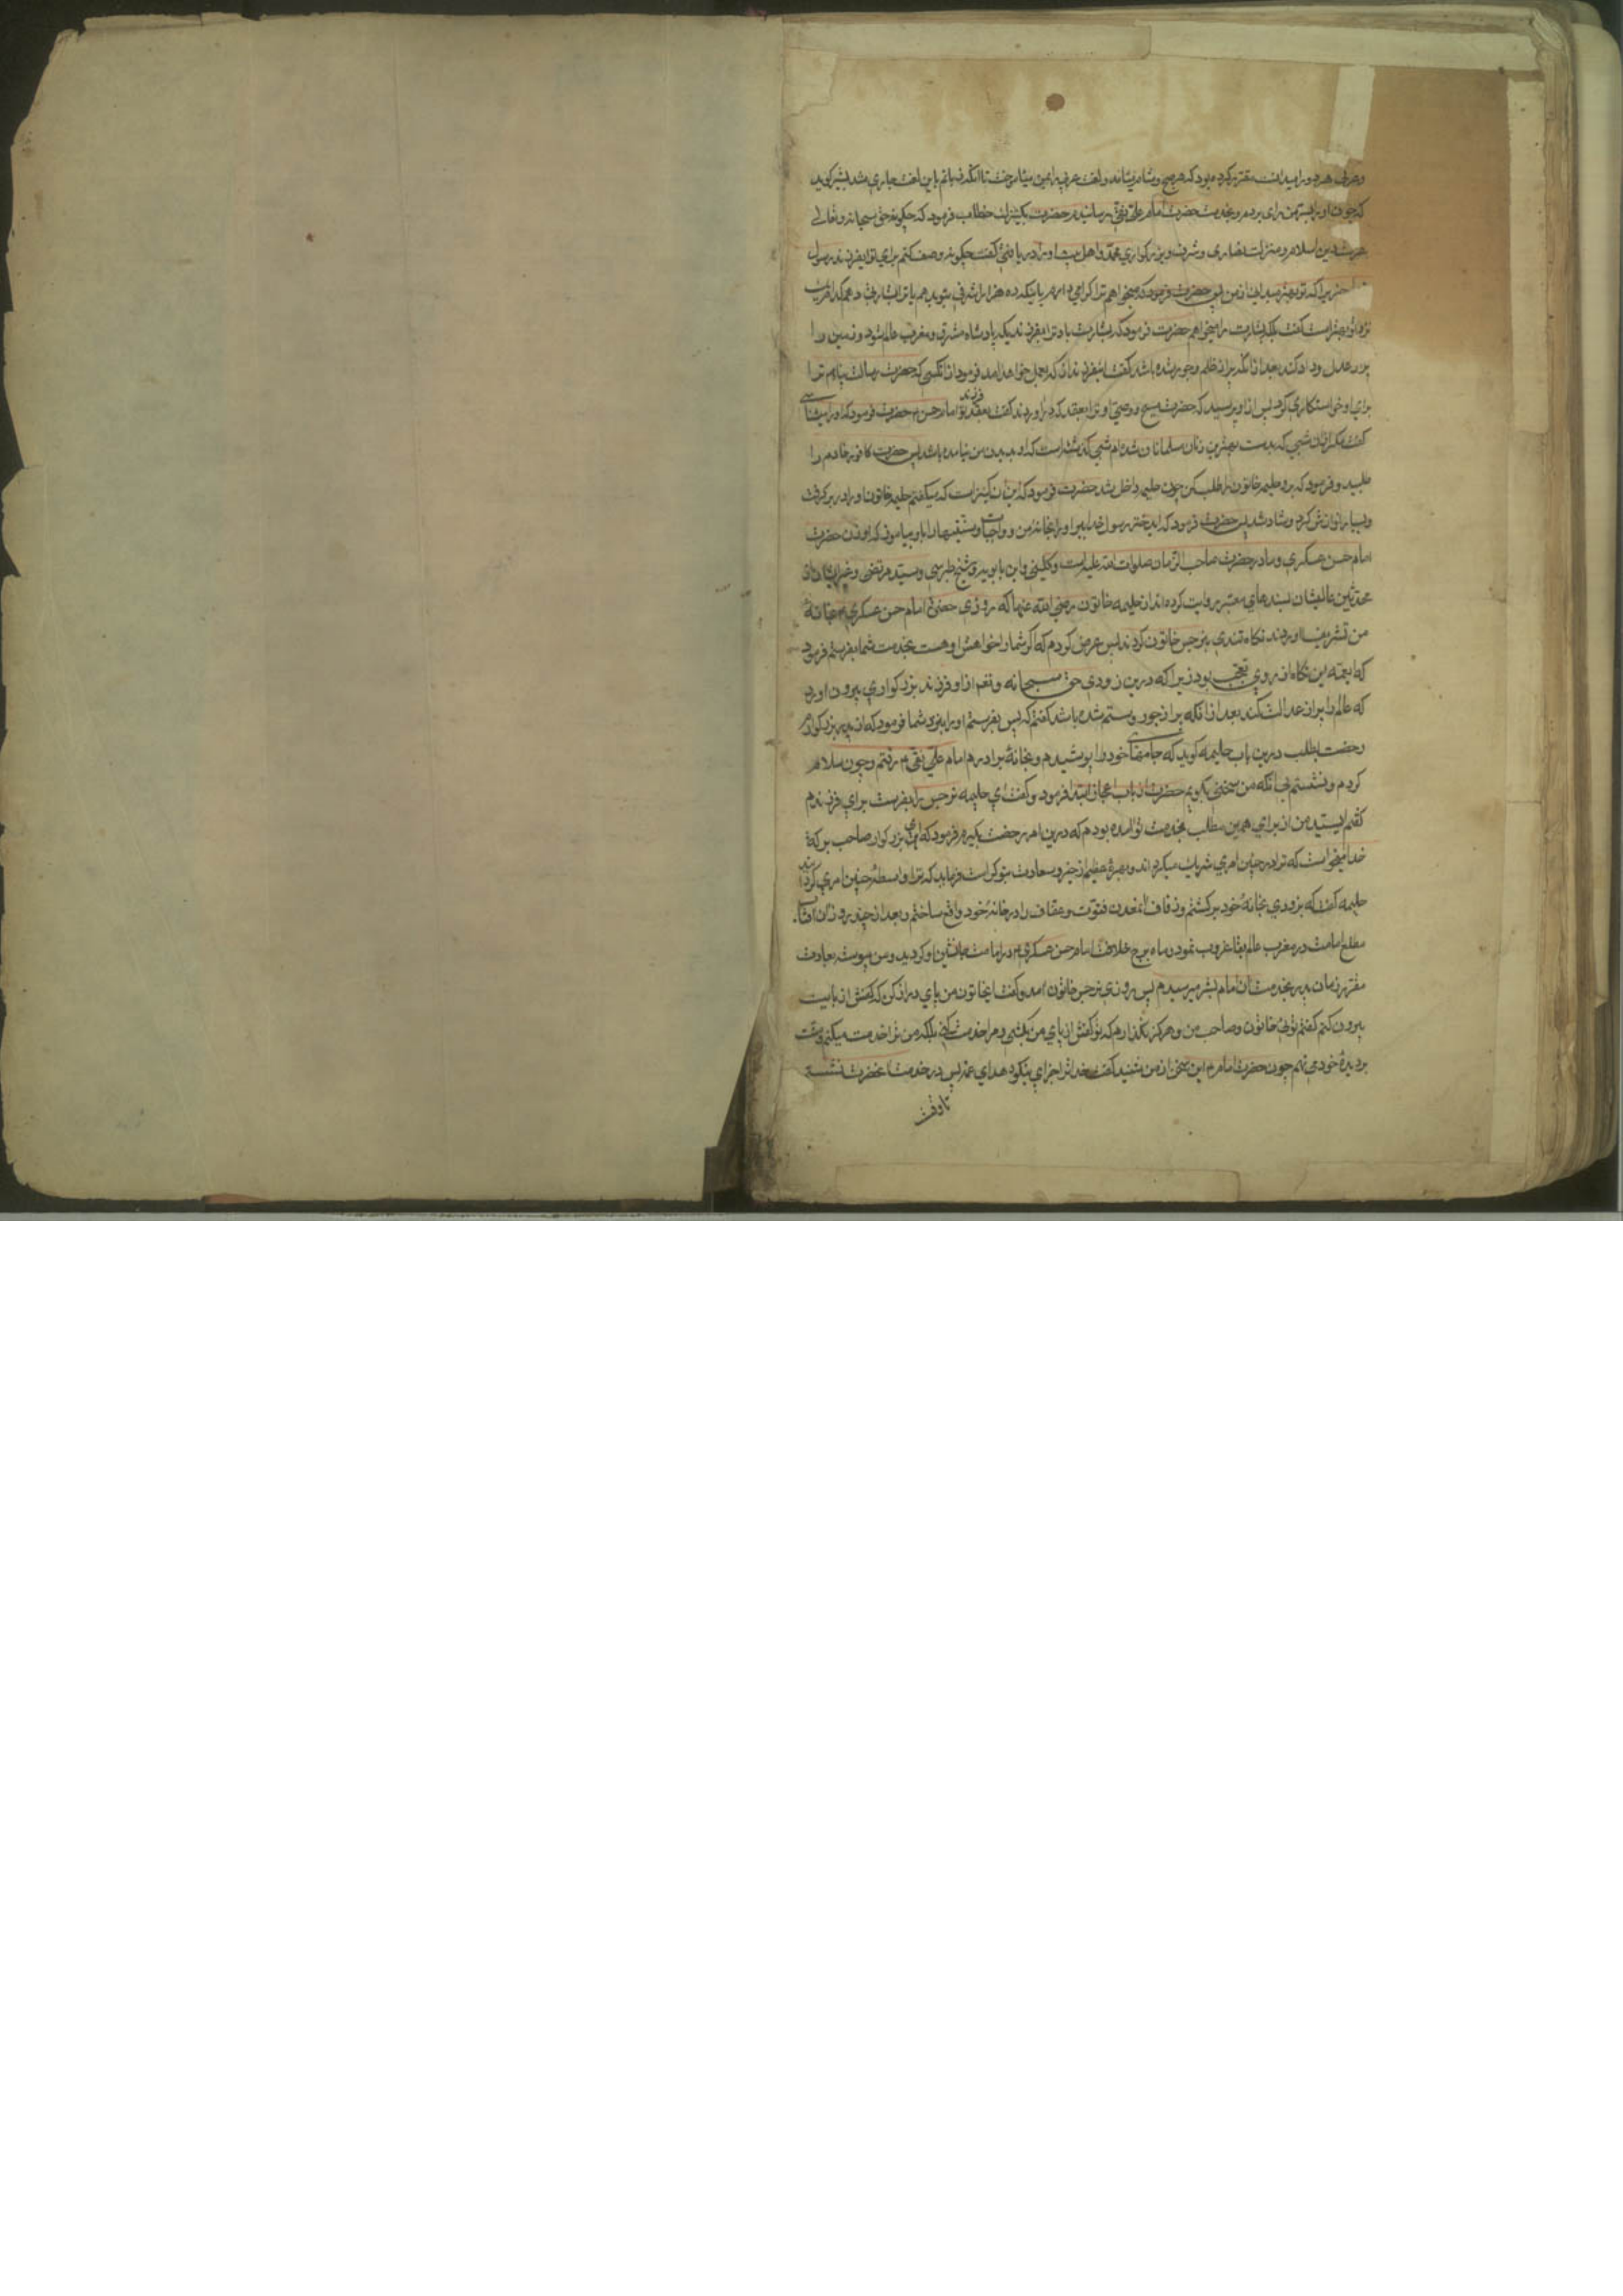 و عربی هر دو را میدانست مقرر کرده بود که هر صبح و شام میامد و لغت عربی بمن میاموخت تا آنکه زبانم باین لغت جاری شد بشیر کوید
که چون او را بسرمن رای بردم و بخدمت حضرت امام علی نقی رسانیدم حضرت بکنیزک خطاب فرمود که چکونه حق سبحانه و تعالی
عزت دین اسلام و مذلت نصاری و شرف و بزرکواری محمد و اهل بیت او را دریافتی کفت چکونه وصف کنم برای تو ایفرزند رسول
چیزیرا که تو بهتر میدانی از من پس حضرت فرمود که میخواهم ترا کرامی دارم یا بتو ده هزار اشرفی بدهم یا ترا بشارتی دهم کدامیک
نزد تو بهتر است کفت بلکه بشارت را میخواهم حضرت فرمود که بشارت باد ترا بفرزندیکه پادشاه مشرق و مغرب عالم شود و زمین را
پر از عدل و داد کند بعد از آنکه پر از ظلم و جور شده باشد کفت اینفرزند از که بعمل خواهد امد فرمود از آنکسی که حضرت رسالت پناهم ترا
برای او خواستکاری کرد پس از او پرسید که حضرت مسیح و وصی او ترا بعقد که دراوردند کفت بعقد فرزند تو امام حسن م حضرت فرمود که او را میشناسی
کفت مکر از آن شبی که بدست بهترین زنان مسلمان شده ام شبی کذشته است که او بدیدن من نیامده باشد پس حضرت کافور خادم را
طلبید و فرمود که برو حلیمه خاتون را طلب کن چون حلیمه داخل شد حضرت فرمود که این آن کنیز است که میکفتم حلیمه خاتون او را در بر کرفت
و بسیار نوازش کرد و شاد شد پس حضرت فرمود که ایدختر رسول خدا ببر او را بخانه من و واجبات و سنتها را باو بیاموز که او زن حضرت
امام حسن عسکری و مادر حضرت صاحب الزمان صلوات الله علیه است و کلینی و ابن بابویه و شیخ طبرسی و سید مرتضی و غیر ایشان از
محدثین عالیشان بسندهای معتبر روایت کرده اند از حلیمه خاتون رضی الله عنها که روزی حضرت امام حسن عسکری م بخانه
من تشریف اوردند نکاه تندی بنرجس خاتون کردند پس عرض کردم که اکر شما را خواهش او هست بخدمت شما بفرستم فرمود
که ایعمه این نکاه از روی تعجب بود زیرا که درین زودی حق سبحانه و تعم از او فرزند بزرکواری بیرون اورد
که عالم را پر از عدالت کند بعد از آنکه پر از جور و ستم شده باشد کفتم که پس بفرستم او را بنزد شما فرمود که از پدر بزرکوارم
رخصت بطلب درین باب حلیمه کوید که جامهای خود را پوشیدم و بخانه برادرم امام علی نقی م رفتم و چون سلام
کردم و نشستم بی آنکه من سخنی بکویم حضرت از باب اعجاز ابتدا فرمود و کفت ای حلیمه نرجس را بفرست برای فرزندم
کفتم ایسید من از برای همین مطلب بخدمت تو امده بودم که درین امر رخصت بکیرم فرمود که ای بزرکوار صاحب برکة
خدا میخواست که ترا در چنین امری شریک میکرداند و بهره عظیم از خیر و سعادت بتو کرامت فرماید که ترا واسطه چنین امری کرداند
حلیمه کفت که بزودی بخانه خود برکشتم و زفاف آنمعدن فتوت و عفاف را در خانه خود واقع ساختم و بعد از چند روز آن افتاب
مطلع امامت در مغرب عالم بقا غروب نمود و ماه برج خلافت امام حسن عسکری م در امامت جانشین او کردید و من پیوسته بعادت
مقرر زمان پدر بخدمت آن امام بشر میرسیدم پس روزی نرجس خاتون امد و کفت ایخاتون من پای دراز کن که کفش از پایت
بیرون کنم کفتم توئی خاتون و صاحب من و هرکز نکذارم که تو کفش از پای من بکشی و مرا خدمت کنی بلکه من ترا خدمت میکنم و منت
بر دیده خود می نهم چون حضرت امام م این سخن از من شنید کفت خدا ترا جزای نیکو دهد ای عمه پس در خدمت انحضرت نشسته
تا وقت